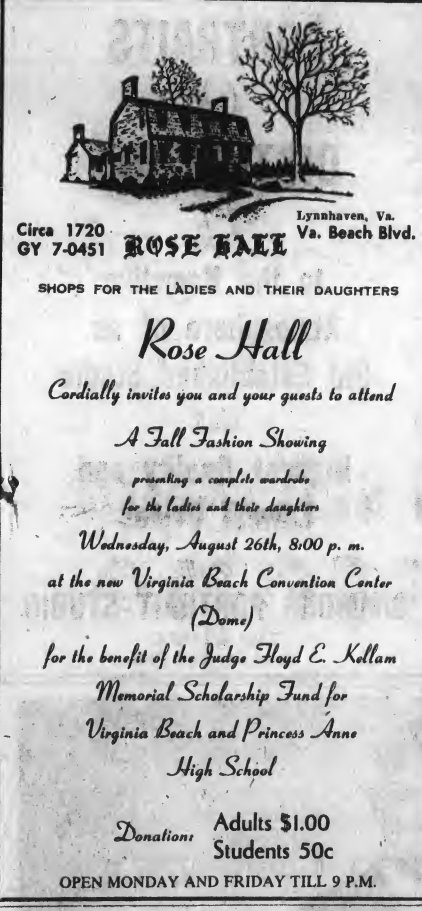 Circa 1720
GY 7-0451
ROSE HALL
Lynnhaven, Va.
Va. Beach Blvd.
SHOPS FOR THE LADIES AND THEIR DAUGHTERS
Rose Hall
Cordially invites you and your guests to attend
A Fall Fashion Showing
presenting a complete wardrobe
for the ladies and their daughters
Wednesday, August 26th, 8:00 p. m.
at the new Virginia Beach Convention Center
(Dome)
for the benefit of the Judge Floyd E. Kellam
Memorial Scholarship Fund for
Virginia Beach and Princess Anne
High School
Donation: Adults $1.00
Students 50c
OPEN MONDAY AND FRIDAY TILL 9 P.M.